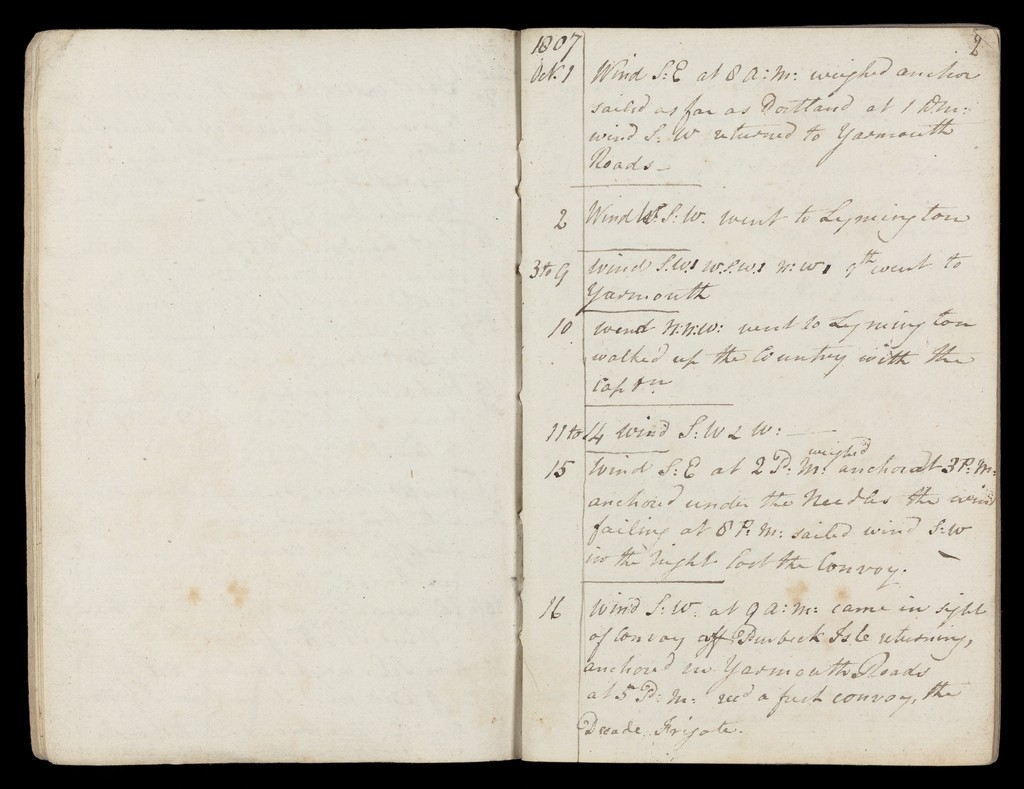 1807
2
Oct. 1 Wind S:E at 8 A:M: weighed anchor
sailed as far as Portland at 1 P.M:
wind S:W returned to Yarmouth
Roads –
2 Wind S:W. went to Lymington
3 to 9 Wind S.W: W.S.W: N:W: 9th went to
Yarmouth
10 Wind N:N:W: went to Lymington
walked up the Country with the
Captn
11 to 14 Wind S:W & W: —
weighed
15 Wind S:E at 2 P:M: anchor at 3 P:M:
anchor'd under the Needles the wind
failing at 8 P:M: sailed wind S:W
in the night lost the Convoy.
16 Wind S:W. at 9 A:M: came in sight
of Convoy off Purbeck Isle returning,
anchor'd in Yarmouth Roads
at 5 P:M. a convoy, the
Decade Frigate.